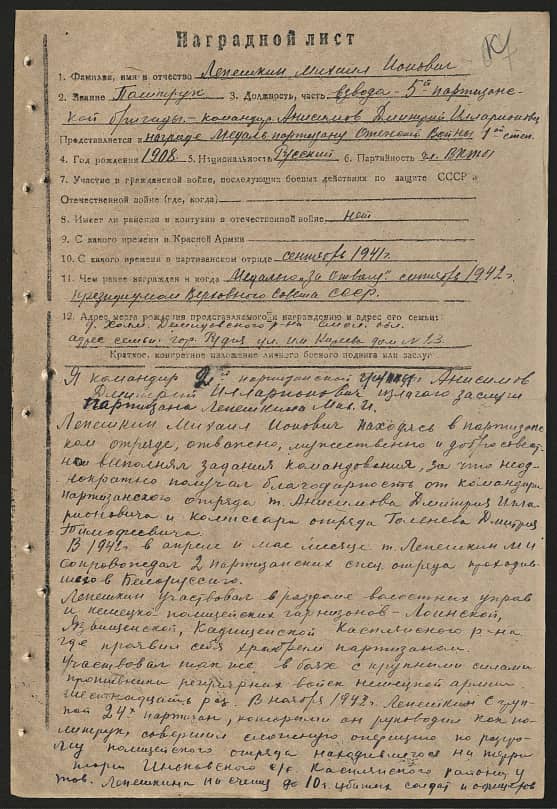 Наградной лист
1. Фамилия, имя и отчество Лепешкин Михаил Ионович
2. Звание Политрук 3. Должность, часть взвода - 5й партизанс-
кой бригады - командир Анисимов Дмитрий Илларионович
Представляется к награде Медаль партизану Отеческой Войны 1ой степ.
4. Год рождения 1908 5. Национальность Русский 6. Партийность чл. ВКП(б)
7. Участие в гражданской войне, последующих боевых действиях по защите СССР и
Отечественной войне (где, когда)
8. Имеет ли ранения и контузии в отечественной войне нет
9. С какого времени в Красной Армии
10. С какого времени в партизанском отряде сентябрь 1941 г.
11. Чем ранее награжден и когда Медалью "За отвагу" сентябрь 1942 г.
Президиумом Верховного Совета СССР.
12. Адрес места рождения представляемого к награждению и адрес его семьи:
д. Холм. Демидовского р-на Смол. обл.
адрес семьи: гор. Рудня ул. им Кирова дом № 23
Краткое, конкретное изложение личного боевого подвига или заслуг
Я командир 2й партизанской группы Анисимов
Дмитрий Илларионович излагаю заслуги
партизана Лепешкина Мих. И.
Лепешкин Михаил Ионович находясь в партизанс-
ком отряде, отважно, мужественно и добросовест-
но выполнял задания командования, за что неод-
нократно получал благодарность от командира
партизанского отряда т. Анисимова Дмитрия Илла-
рионовича и комиссара отряда Дмитрия
Тимофеевича.
В 1942 г. в апреле и мае месяце т. Лепешкин М И
сопровождал 2 партизанских спец. отряда проходив-
ших в Белоруссию.
Лепешкин участвовал в разгроме волостных управ
и немецко-полицейских гарнизонов - Лоинской,
Язвищенской, Кадищенской Касплянского р-на
где проявил себя храбрым партизаном.
Участвовал так же в боях с крупными силами
противника регулярных войск немецкой армии
шестнадцать раз. В ноябре 1942 г. Лепешкин с груп-
пой 24х партизан, которыми он руководил как по-
литрук, совершил сложную операцию по разгро-
му полицейского отряда находившегося на терри-
тории с/с Касплянского района, у
тов. Лепешкина на счету до 10 убитых солдат и офицеров